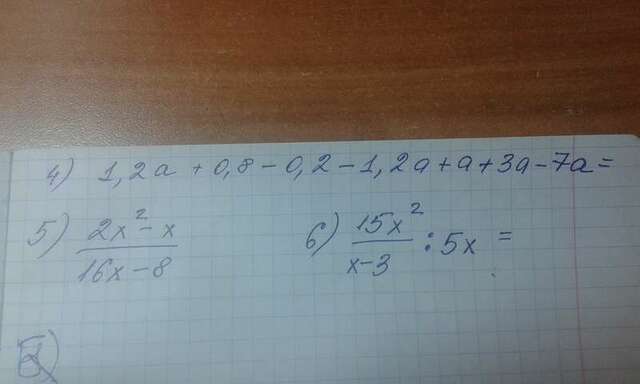 4) 1,2a + 0,8 - 0,2 - 1,2a + a + 3a - 7a =
5) (2x² - x)/(16x - 8) 6) 15x²/(x-3) : 5x =